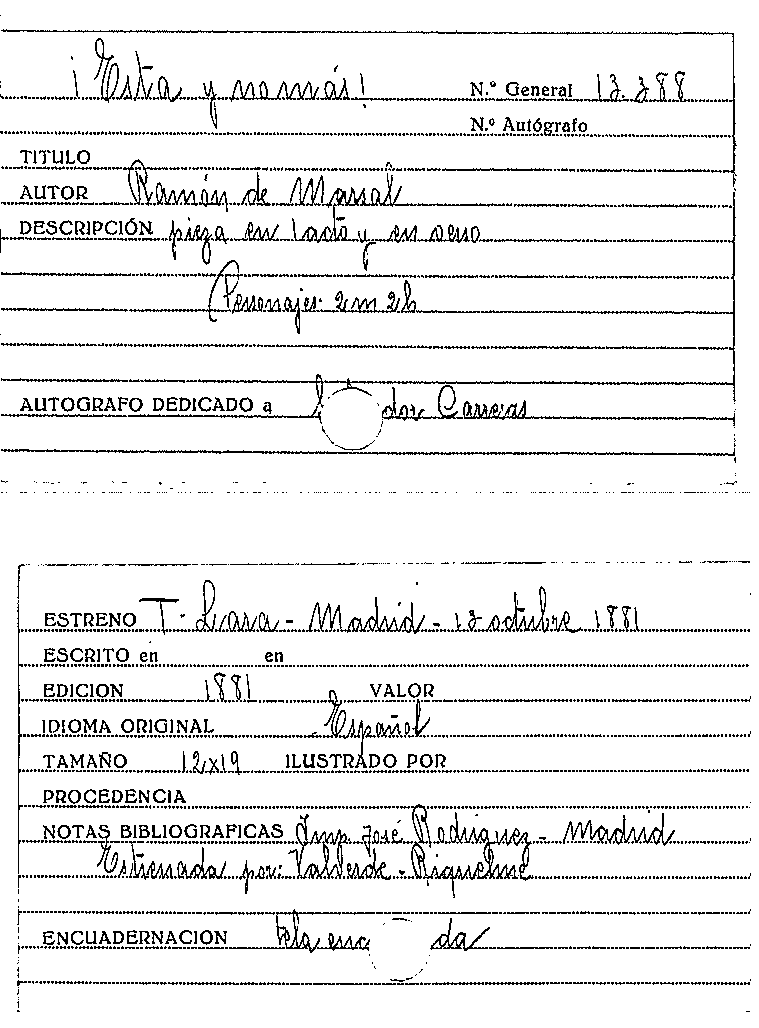 ¡Esta y no más! N.º General 13.388
N.º Autógrafo
TITULO
AUTOR Ramón de Marsal
DESCRIPCIÓN pieza en 1 acto y en verso
(Personajes: 2 m 2 h
AUTOGRAFO DEDICADO a dor Carreras
ESTRENO T. Lara - Madrid - 13 octubre 1881
ESCRITO en en
EDICION 1881 VALOR
IDIOMA ORIGINAL Español
TAMAÑO 12x19 ILUSTRADO POR
PROCEDENCIA
NOTAS BIBLIOGRAFICAS Imp. José Rodriguez - Madrid
Estrenada por: Valverde - Riquelme
ENCUADERNACION tela enc da